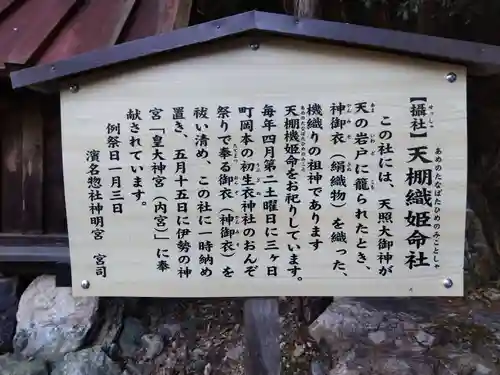 【攝社】天棚織姫命社
せっしゃ
あめのたなばたひめのみことしゃ
この社には、天照大御神が
天の岩戸に籠られたとき、
あま いわ ど
神御衣（絹織物）を織った、
かんみそ
機織りの祖神であります
天棚機姫命をお祀りしています。
あめのたなばたひめのみこと
毎年四月第二土曜日に三ヶ日
町岡本の初生衣神社のおんぞ
祭りで奉る御衣（神御衣）を
祓い清め、この社に一時納め
置き、五月十五日に伊勢の神
宮「皇大神宮（内宮）」に奉
献されています。
例祭日一月三日
濱名惣社神明宮 宮司